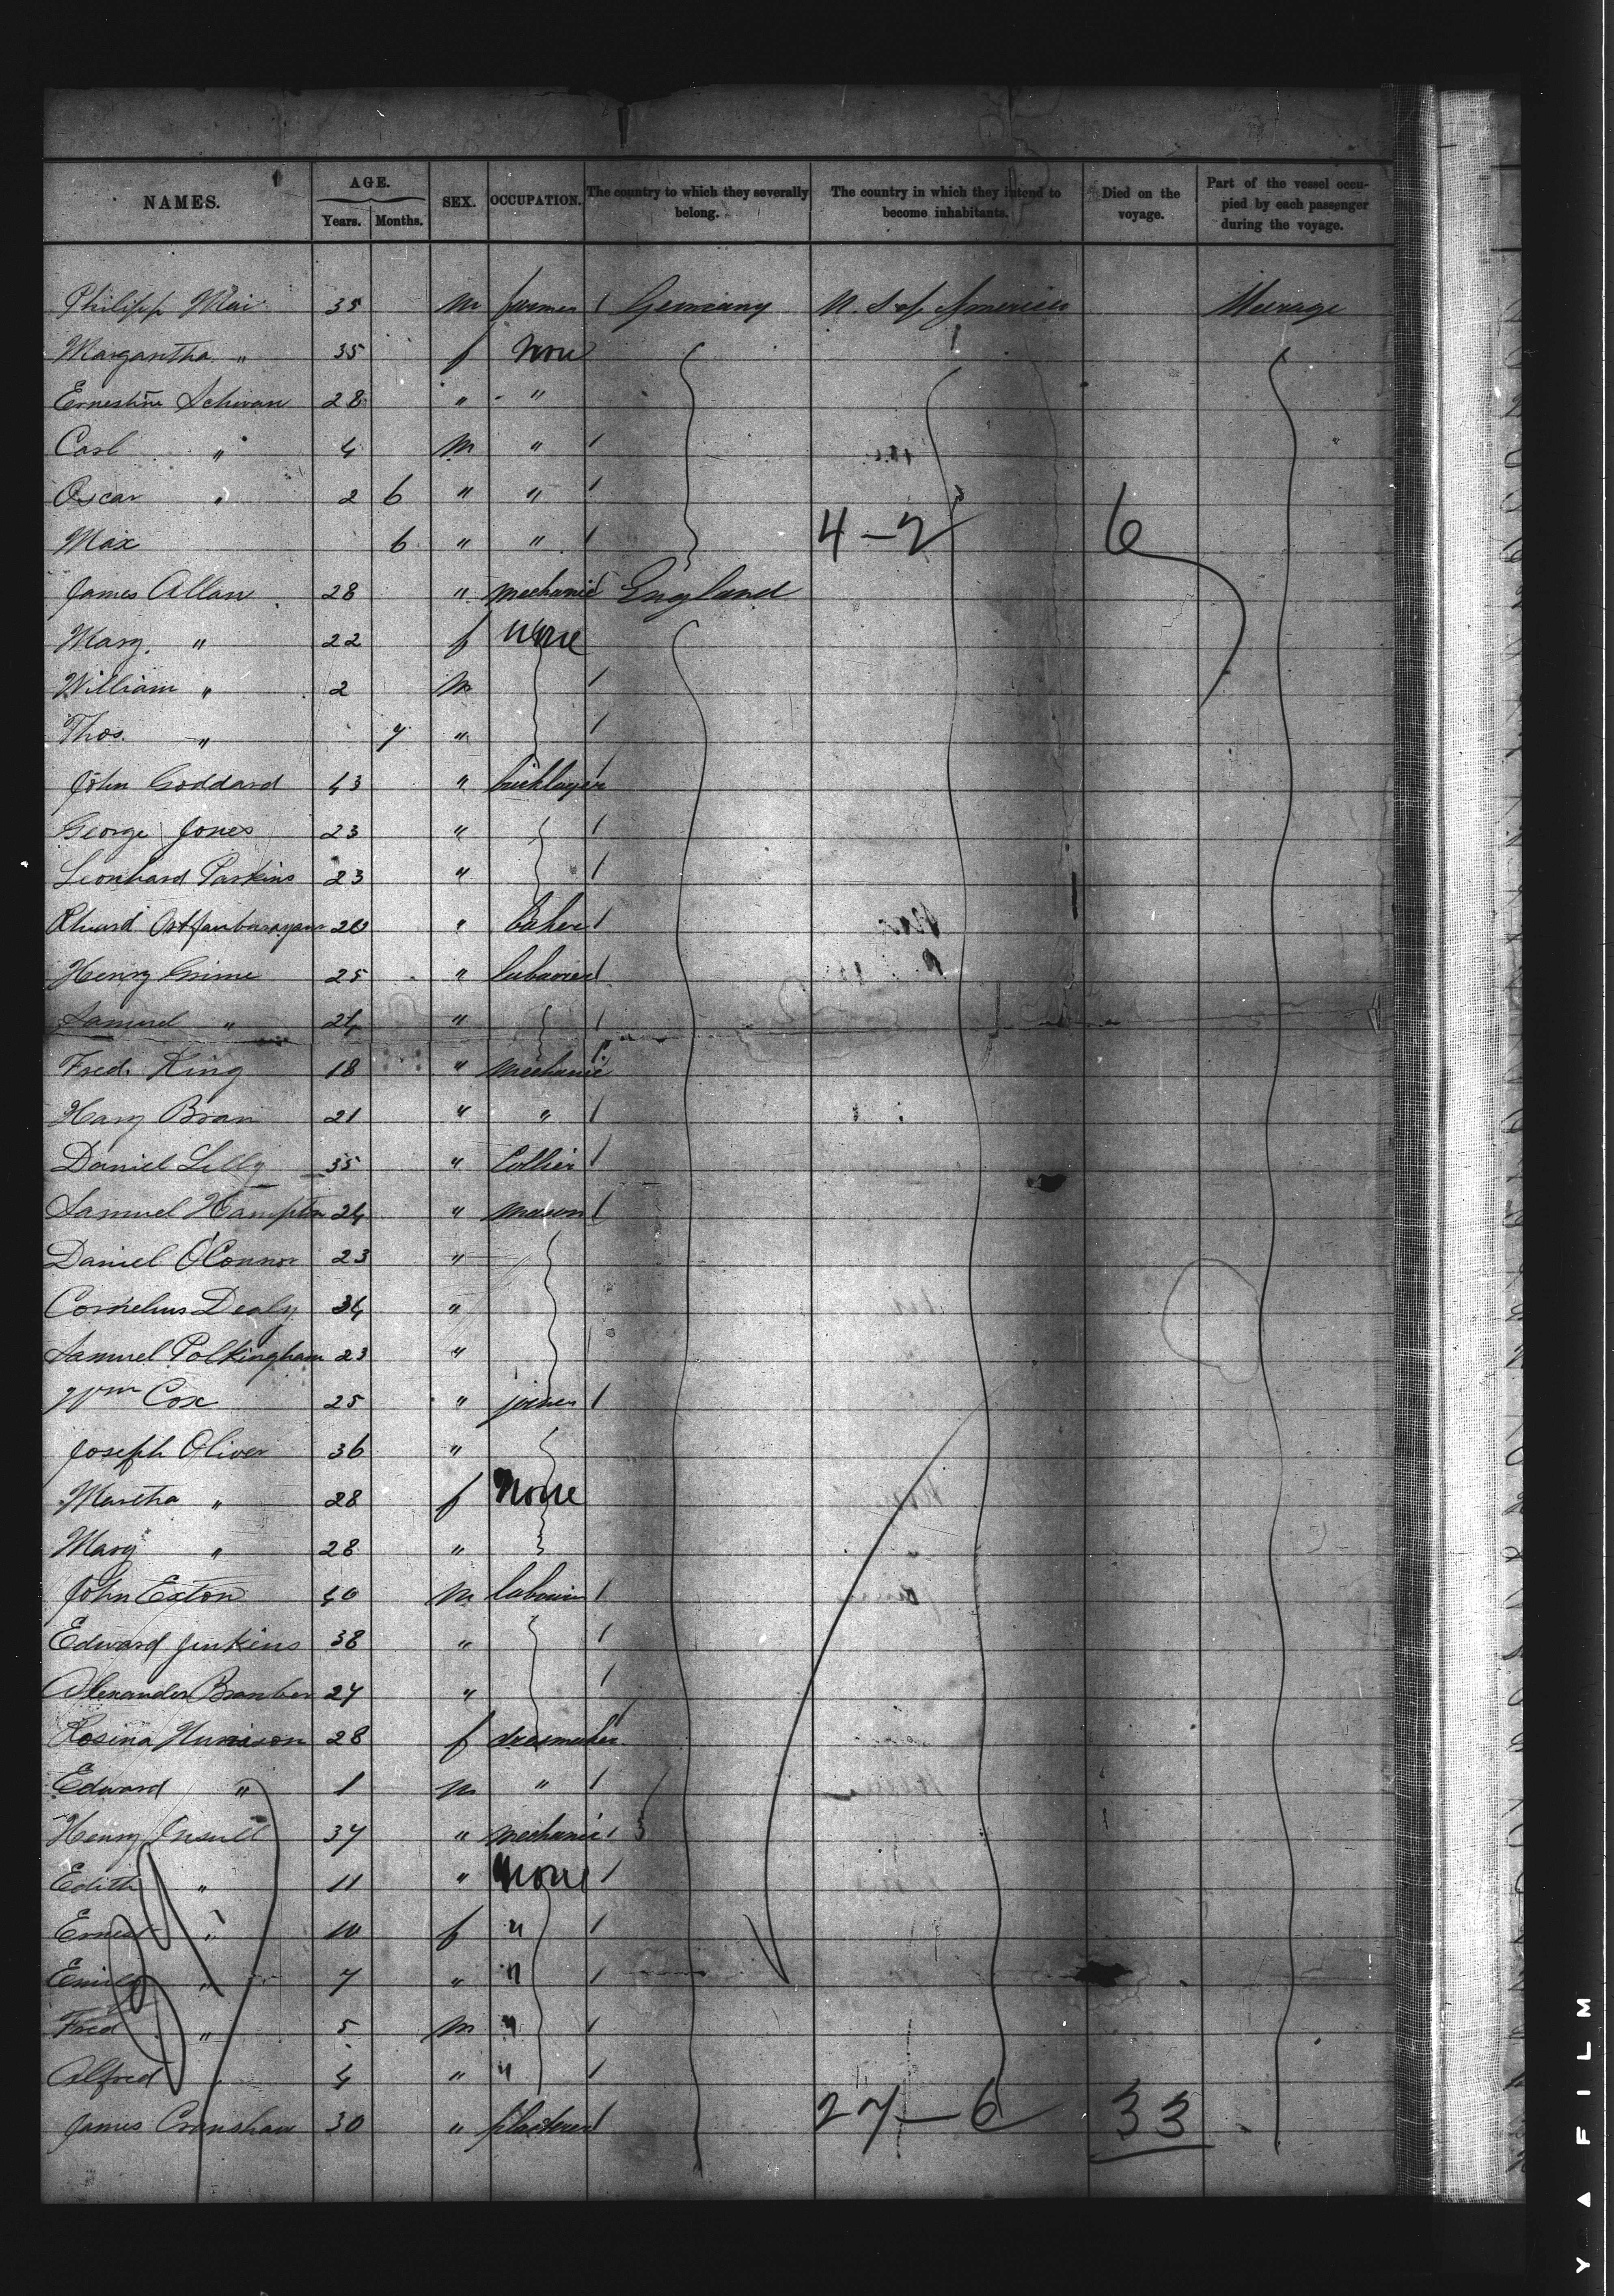 NAMES. AGE. Years. Months. SEX. OCCUPATION. The country to which they severally belong. The country in which they intend to become inhabitants. Died on the voyage. Part of the vessel occupied by each passenger during the voyage.
Philipp 35 m farmer / Germany U. S. of America
Margaretha " 35 f none
Ernestine Schwan 28 " "
Carl " 4 m " /
Oscar " 2 6 " " /
Max 6 " " / 4-2 6
James Allan 28 " mechanic England
Mary " 22 f none
William " 2 m /
Thos. " 7 " /
John Goddard 43 " bricklayer
George Jones 23 " /
Leonhard Parkins 23 " /
20 " baker /
Henry Grime 25 " labourer /
Samuel " 24 " /
Fred. King 18 " mechanic
Harry Bran 21 " " /
Daniel Lilly 35 " Collier /
Samuel Hampton 24 " mason /
Daniel O'Connor 23 "
Cornelius Dealy 34 "
Samuel Polkingham 23 "
Wm Cox 25 " joiner /
Joseph Oliver 36 "
Martha " 28 f None
Mary " 28 "
John Exton 40 m labourer /
Edward Jenkins 38 " /
Alexander 27 " /
Rosina 28 f dressmaker
Edward " 1 m " /
Henry Insull 37 " mechanic /
Edith " 11 " none /
Ernest " 10 f " /
Emily " 7 " " /
Fred " 5 m " /
Alfred " 4 " " /
James Cranshaw 30 " plasterer / 27-6 33
FILM